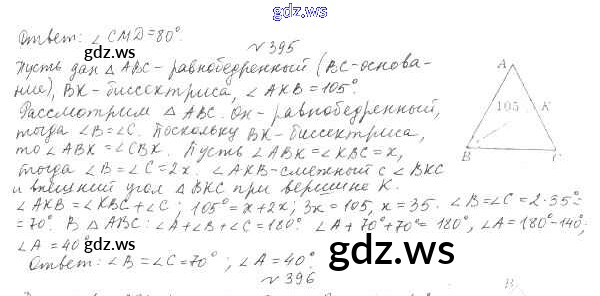 gdz.ws
Ответ: ∠CMD=80°.
№395
Пусть дан △ABC - равнобедренный (BC-основа-
ние), BK - биссектриса, ∠AKB=105°.
Рассмотрим △ABC. Он - равнобедренный,
тогда ∠B=∠C. Поскольку BK-биссектриса,
то ∠ABK=∠CBK. Пусть ∠ABK=∠KBC=x,
тогда ∠B=∠C=2x. ∠AKB-смежный с ∠BKC
и внешний угол △BKC при вершине K.
∠AKB=∠KBC+∠C; 105°=x+2x; 3x=105, x=35. ∠B=∠C=2·35°=
=70°. В △ABC: ∠A+∠B+∠C=180° ∠A+70°+70°=180°, ∠A=180°-140°;
∠A=40°
Ответ: ∠B=∠C=70°; ∠A=40°.
№396
A
105
K
B
C
gdz.ws
gdz.ws
B